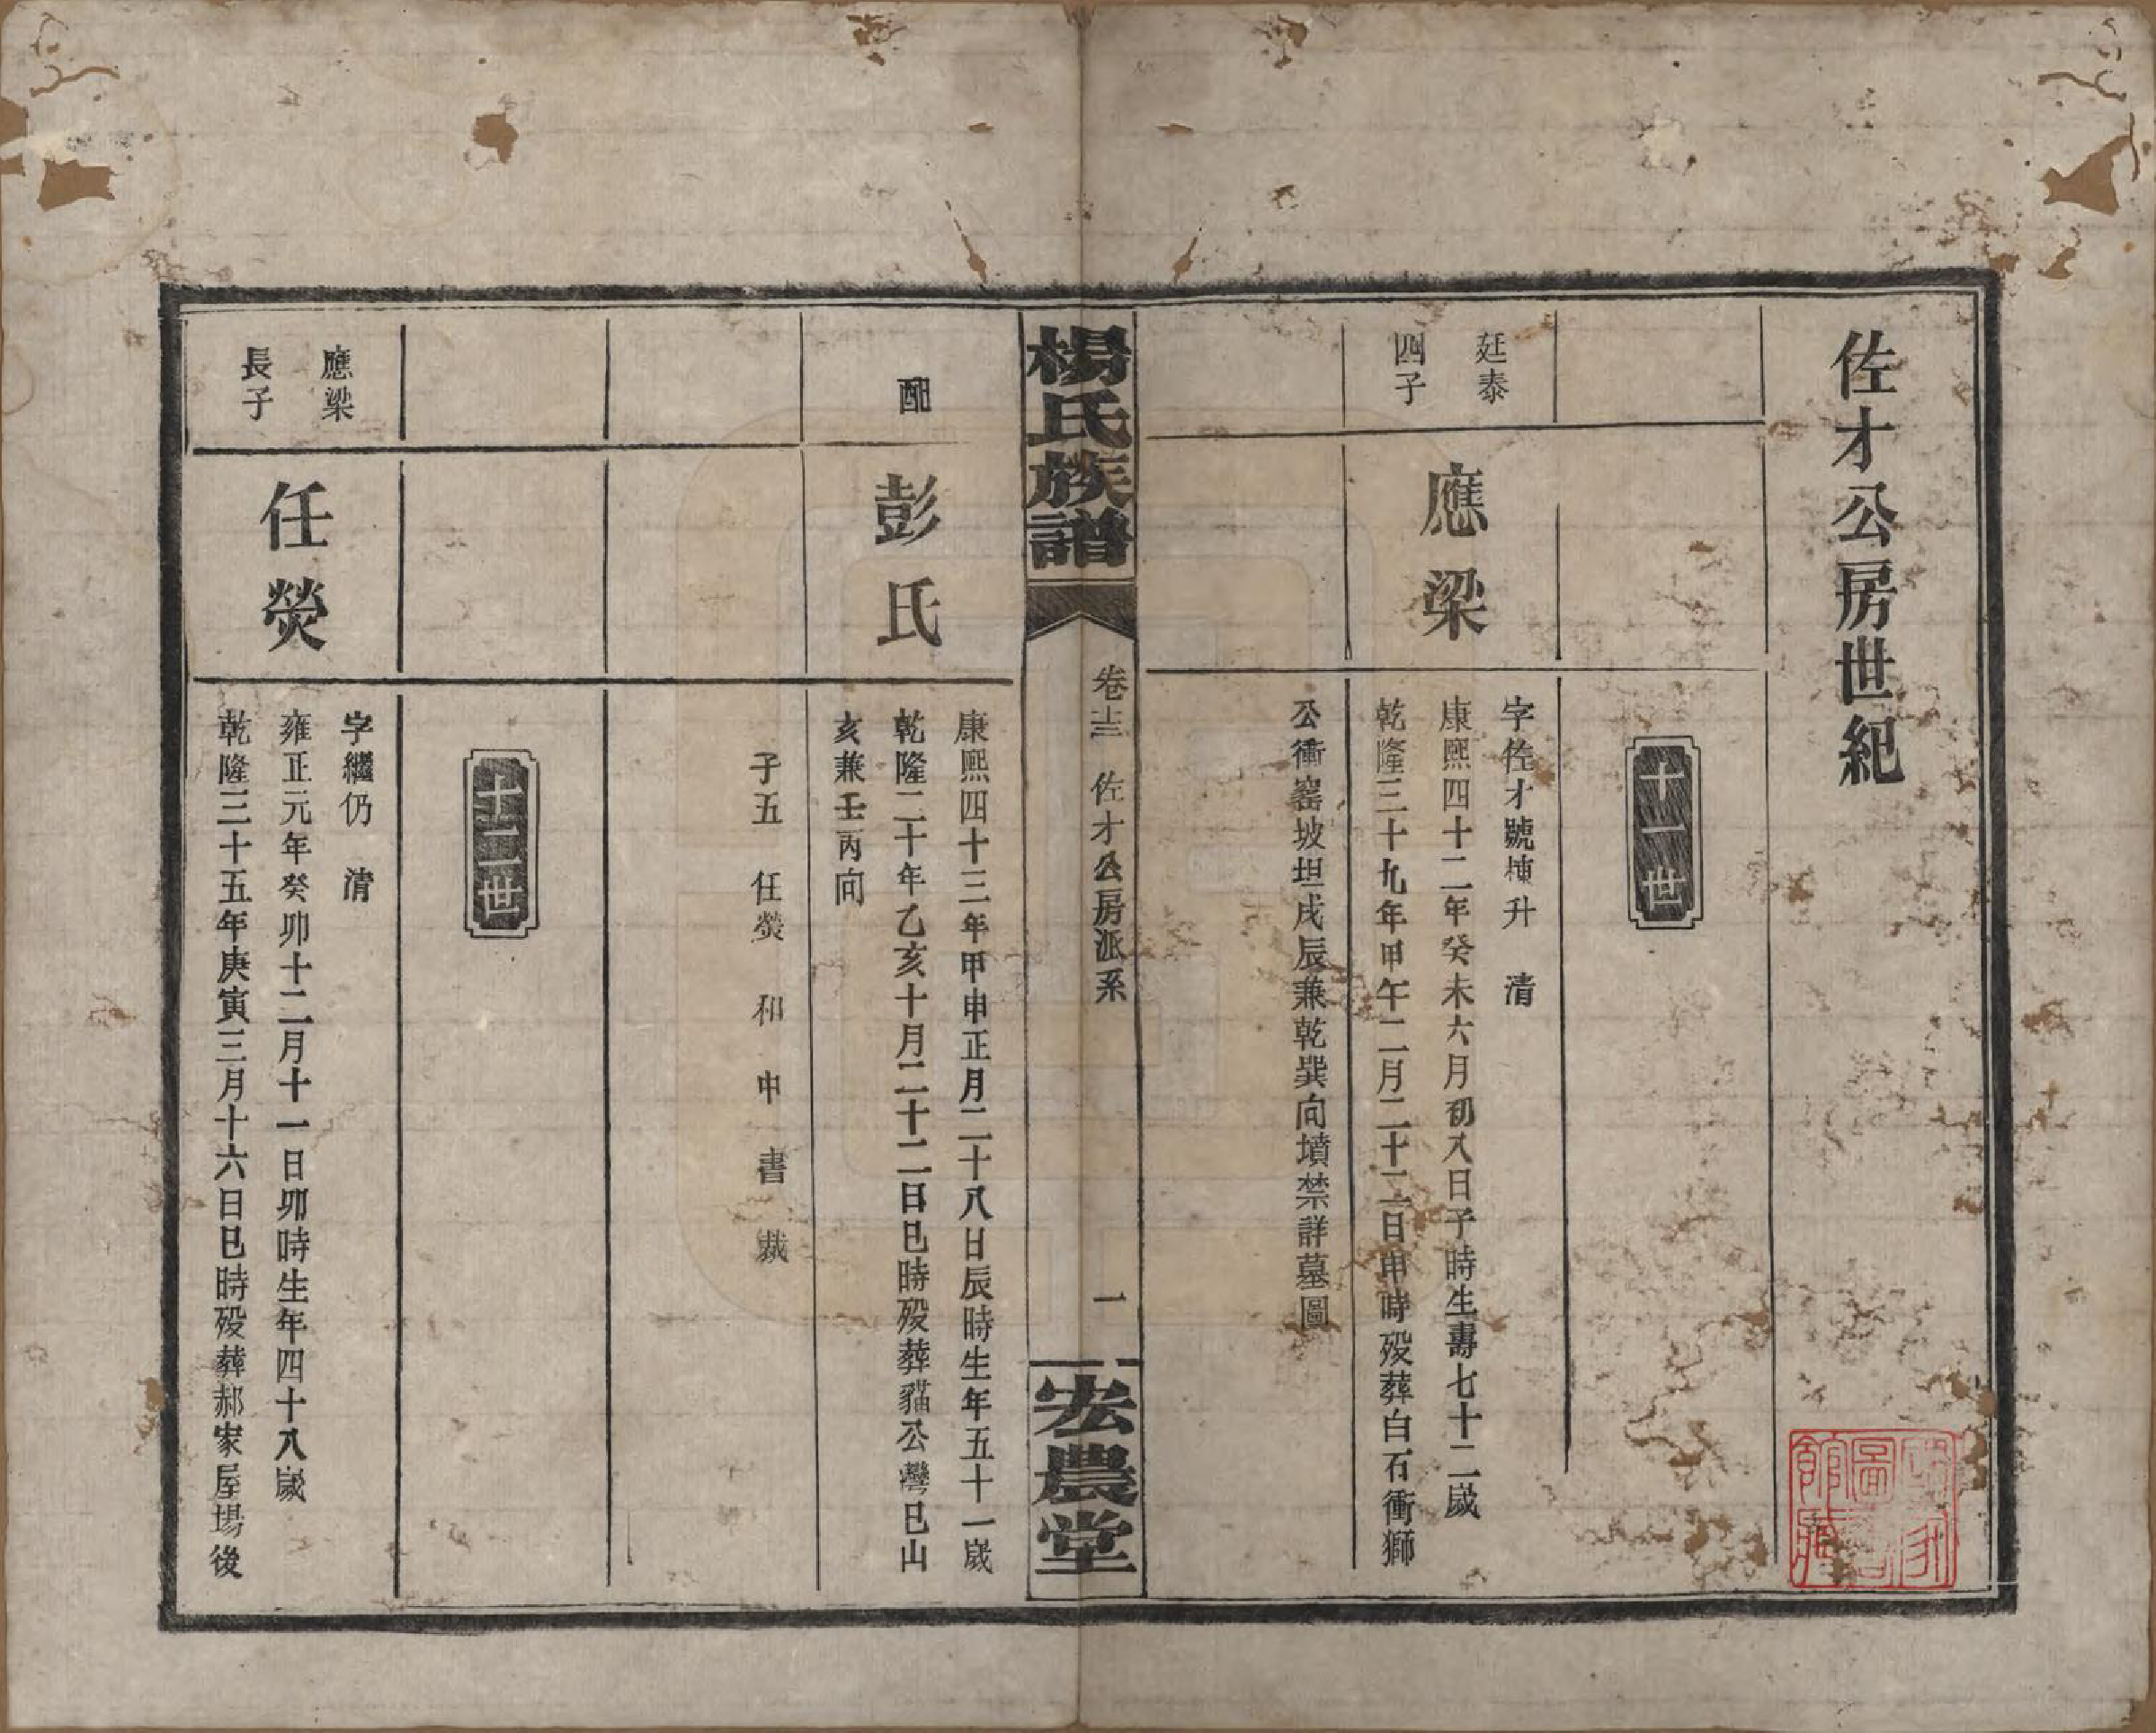 佐才公房世紀
十一世
廷泰
四子
應梁
字佐才號棟升　清
康熙四十二年癸未六月初八日子時生壽七十二歲
乾隆三十九年甲午二月二十二日申時歿葬白石衝獅
公衝窰坡坦戌辰兼乾巽向墳禁詳墓圖
楊氏族譜
卷十三　佐才公房派系
一
宏農堂
配
彭氏
康熙四十三年甲申正月二十八日辰時生年五十一歲
乾隆二十年乙亥十月二十二日巳時歿葬貓公灣巳山
亥兼壬丙向
子五　任熒　和　申　書　裁
十二世
應梁
長子
任熒
字繼仍　清
雍正元年癸卯十二月十一日卯時生年四十八歲
乾隆三十五年庚寅三月十六日巳時歿葬郝家屋場後